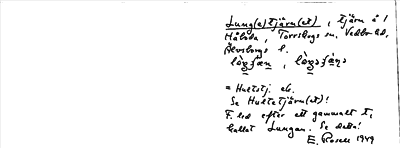 Lung(e)tjärn(et), tjärn å l
Håbola, Torrskogs sn, Vedbo hd,
Älvsborgs l.
= Hultetj. ek.
Se Hultetjärn(et)!
F. led efter ett gammalt
kallat Lungan. Se detta!
E. Rosell 1949